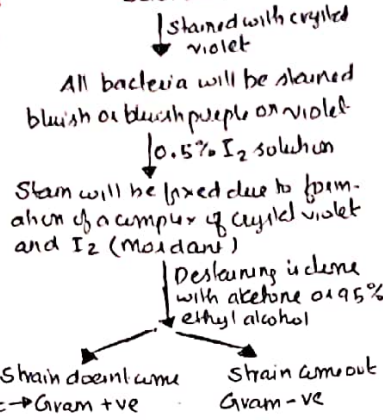 Stained with crystal
violet
All bacteria will be stained
bluish or bluish purple or violet
0.5% I2 solution
Stain will be fixed due to form-
ation of a complex of crystal violet
and I2 (Mordant)
Destaining is done
with acetone or 95%
ethyl alcohol
Strain doesn't come
→ Gram +ve
Strain come out
Gram -ve